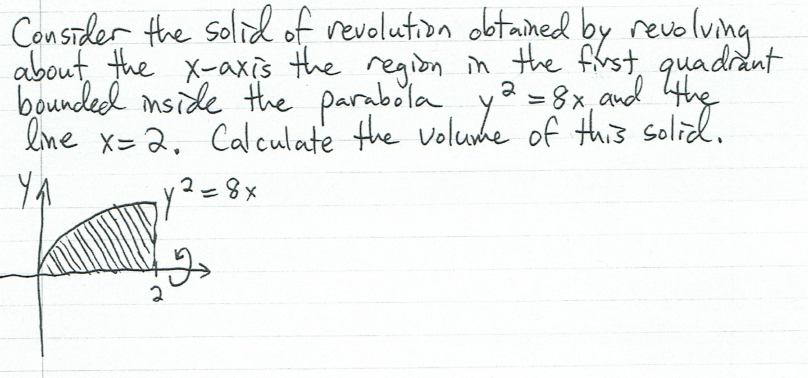 Consider the solid of revolution obtained by revolving
about the x-axis the region in the first quadrant
bounded inside the parabola y² = 8x and the
line x = 2. Calculate the volume of this solid.
y
y² = 8x
2